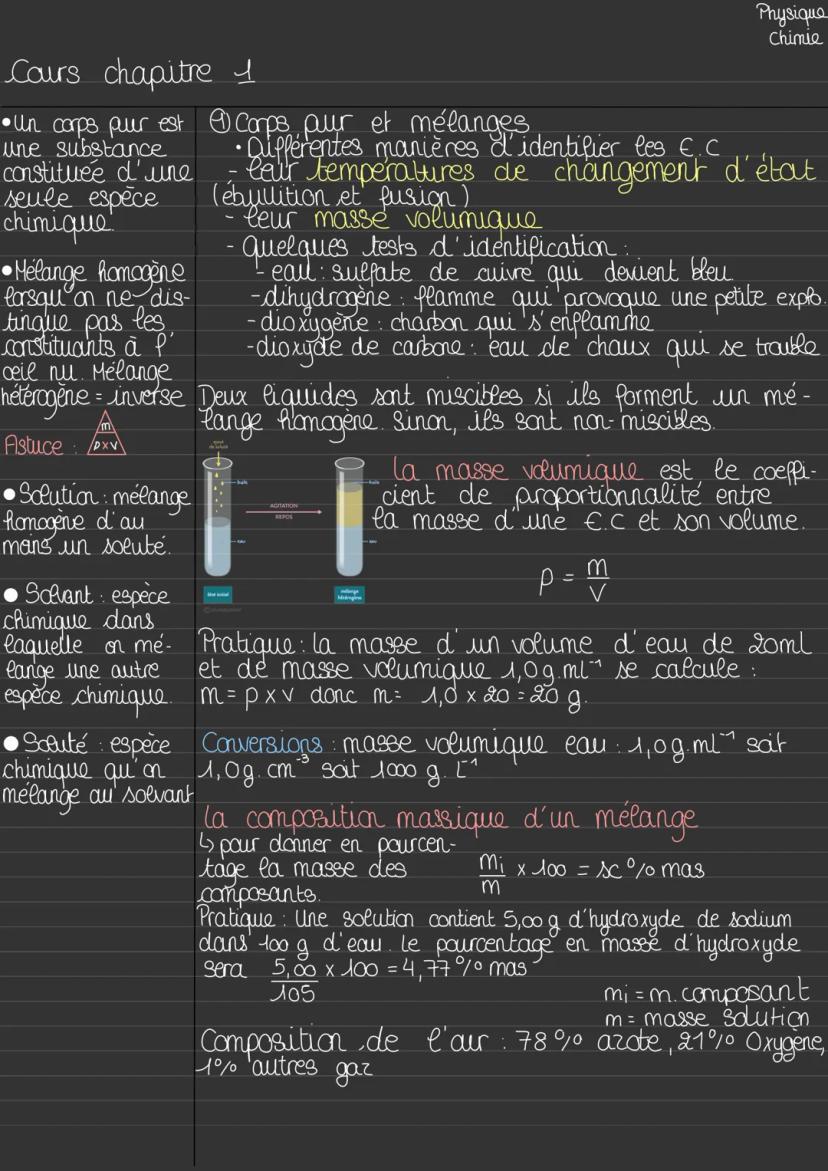 Physique
Chimie
Cours chapitre 1
• Un corps pur est
une substance
constituée d'une
seule espèce
chimique.
• Mélange homogène
lorsqu'on ne dis-
tingue pas les
constituants à l'
œil nu. Mélange
hétérogène = inverse
Astuce :
m
ρxv
• Solution : mélange
homogène d'au
moins un soluté.
• Solvant : espèce
chimique dans
laquelle on mé-
lange une autre
espèce chimique.
• Soluté : espèce
chimique qu'on
mélange au solvant
① Corps pur et mélanges
• Différentes manières d'identifier les E.C
- leur températures de changement d'état
(ébullition et fusion)
- leur masse volumique
- Quelques tests d'identification :
- eau : sulfate de cuivre qui devient bleu
- dihydrogène : flamme qui provoque une petite explo.
- dioxygène : charbon qui s'enflamme
- dioxyde de carbone : eau de chaux qui se trouble
Deux liquides sont miscibles si ils forment un mé-
lange homogène. Sinon, ils sont non-miscibles.
huile
eau
état initial
AGITATION
REPOS
huile
eau
mélange
hétérogène
La masse volumique est le coeffi-
cient de proportionnalité entre
la masse d'une E.C et son volume.
ρ = m/V
Pratique : la masse d'un volume d'eau de 20ml
et de masse volumique 1,0g.ml⁻¹ se calcule :
m = ρ x v donc m = 1,0 x 20 = 20 g.
Conversions : masse volumique eau : 1,0g.ml⁻¹ soit
1,0g.cm⁻³ soit 1000 g.L⁻¹
La composition massique d'un mélange
↳ pour donner en pourcen-
tage la masse des
composants.
mi/m x 100 = x % mas
Pratique : Une solution contient 5,00 g d'hydroxyde de sodium
dans 100 g d'eau. Le pourcentage en masse d'hydroxyde
sera 5,00/105 x 100 = 4,77 % mas
mi = m. composant
m = masse solution
Composition de l'air : 78% azote, 21% Oxygène,
1% autres gaz